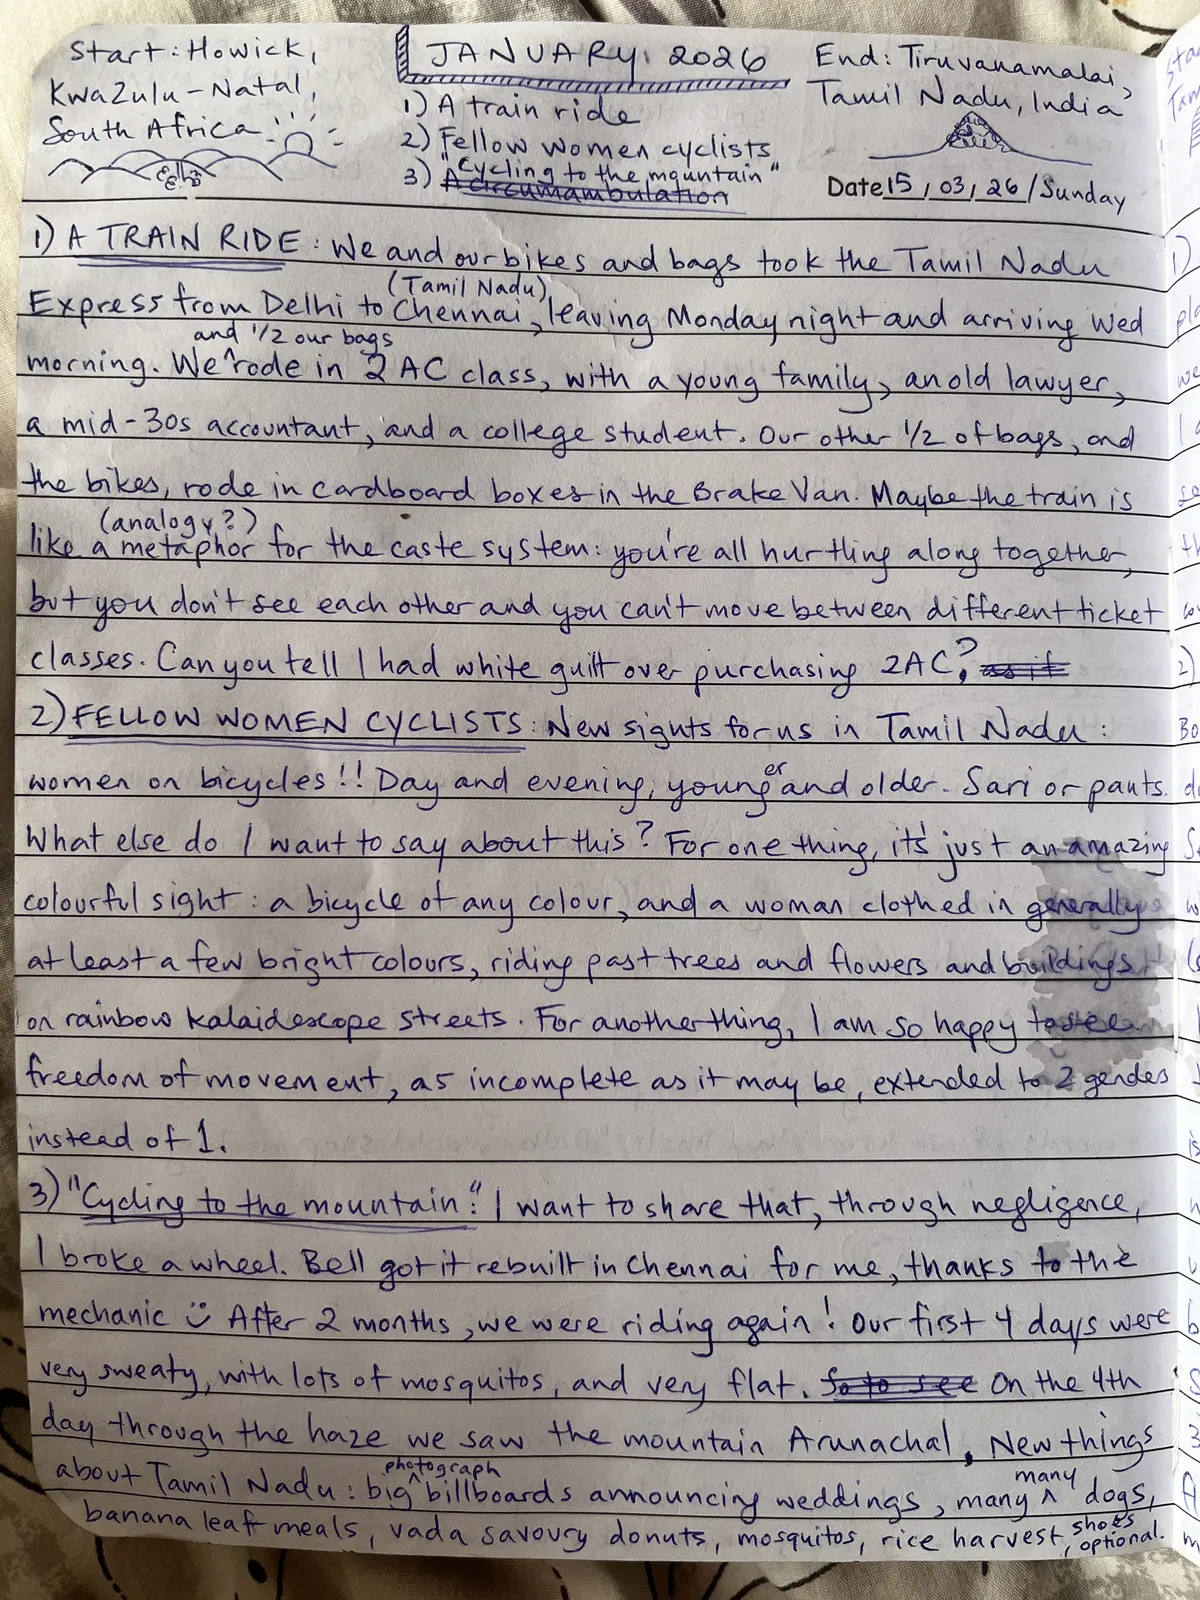 Start: Howick,
KwaZulu-Natal,
South Africa
JANUARY 2026
1) A train ride
2) Fellow women cyclists
3) "Cycling to the mountain"
A circumambulation
End: Tiruvanamalai,
Tamil Nadu, India
Date 15/03/26/Sunday
1) A TRAIN RIDE: We and our bikes and bags took the Tamil Nadu
(Tamil Nadu)
Express from Delhi to Chennai, leaving Monday night and arriving Wed
and 1/2 our bags
morning. We ^ rode in 2AC class, with a young family, an old lawyer,
a mid-30s accountant, and a college student. Our other 1/2 of bags, and
the bikes, rode in cardboard boxes in the Brake Van. Maybe the train is
(analogy?)
like a metaphor for the caste system: you're all hurtling along together,
but you don't see each other and you can't move between different ticket
classes. Can you tell I had white guilt over purchasing 2AC? as if
2) FELLOW WOMEN CYCLISTS: New sights for us in Tamil Nadu:
women on bicycles!! Day and evening, younger and older. Sari or pants.
What else do I want to say about this? For one thing, it's just an amazing
colourful sight: a bicycle of any colour, and a woman clothed in generally
at least a few bright colours, riding past trees and flowers and buildings
on rainbow kalaidescope streets. For another thing, I am so happy to see
freedom of movement, as incomplete as it may be, extended to 2 genders
instead of 1.
3) "Cycling to the mountain": I want to share that, through negligence,
I broke a wheel. Bell got it rebuilt in Chennai for me, thanks to the
mechanic ☺ After 2 months, we were riding again! Our first 4 days were
very sweaty, with lots of mosquitos, and very flat. So to see On the 4th
day through the haze we saw the mountain Arunachal. New things
photograph many
about Tamil Nadu: big ^ billboards announcing weddings, many ^ dogs,
banana leaf meals, vada savoury donuts, mosquitos, rice harvest, shoes
optional.